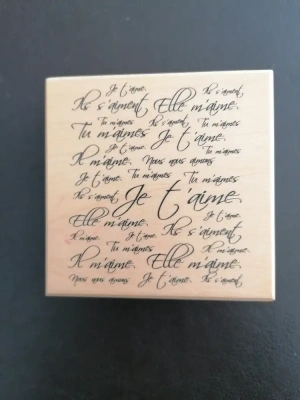 Je t'aime. Ils s'aiment
Ils s'aiment Elle m'aime.
Tu m'aimes Ils s'aiment Tu m'aimes
Tu m'aimes Je t'aime.
Je t'aime. Tu m'aimes
Il m'aime. Nous nous aimons
Je t'aime. Tu m'aimes Tu m'aimes
Ils s'aiment Je t'aime.
Je t'aime.
Elle m'aime. Ils s'aiment
Il m'aime. Je t'aime.
Tu m'aimes Il m'aime.
Il m'aime. Elle m'aime.
Nous nous aimons Je t'aime. Ils s'aiment